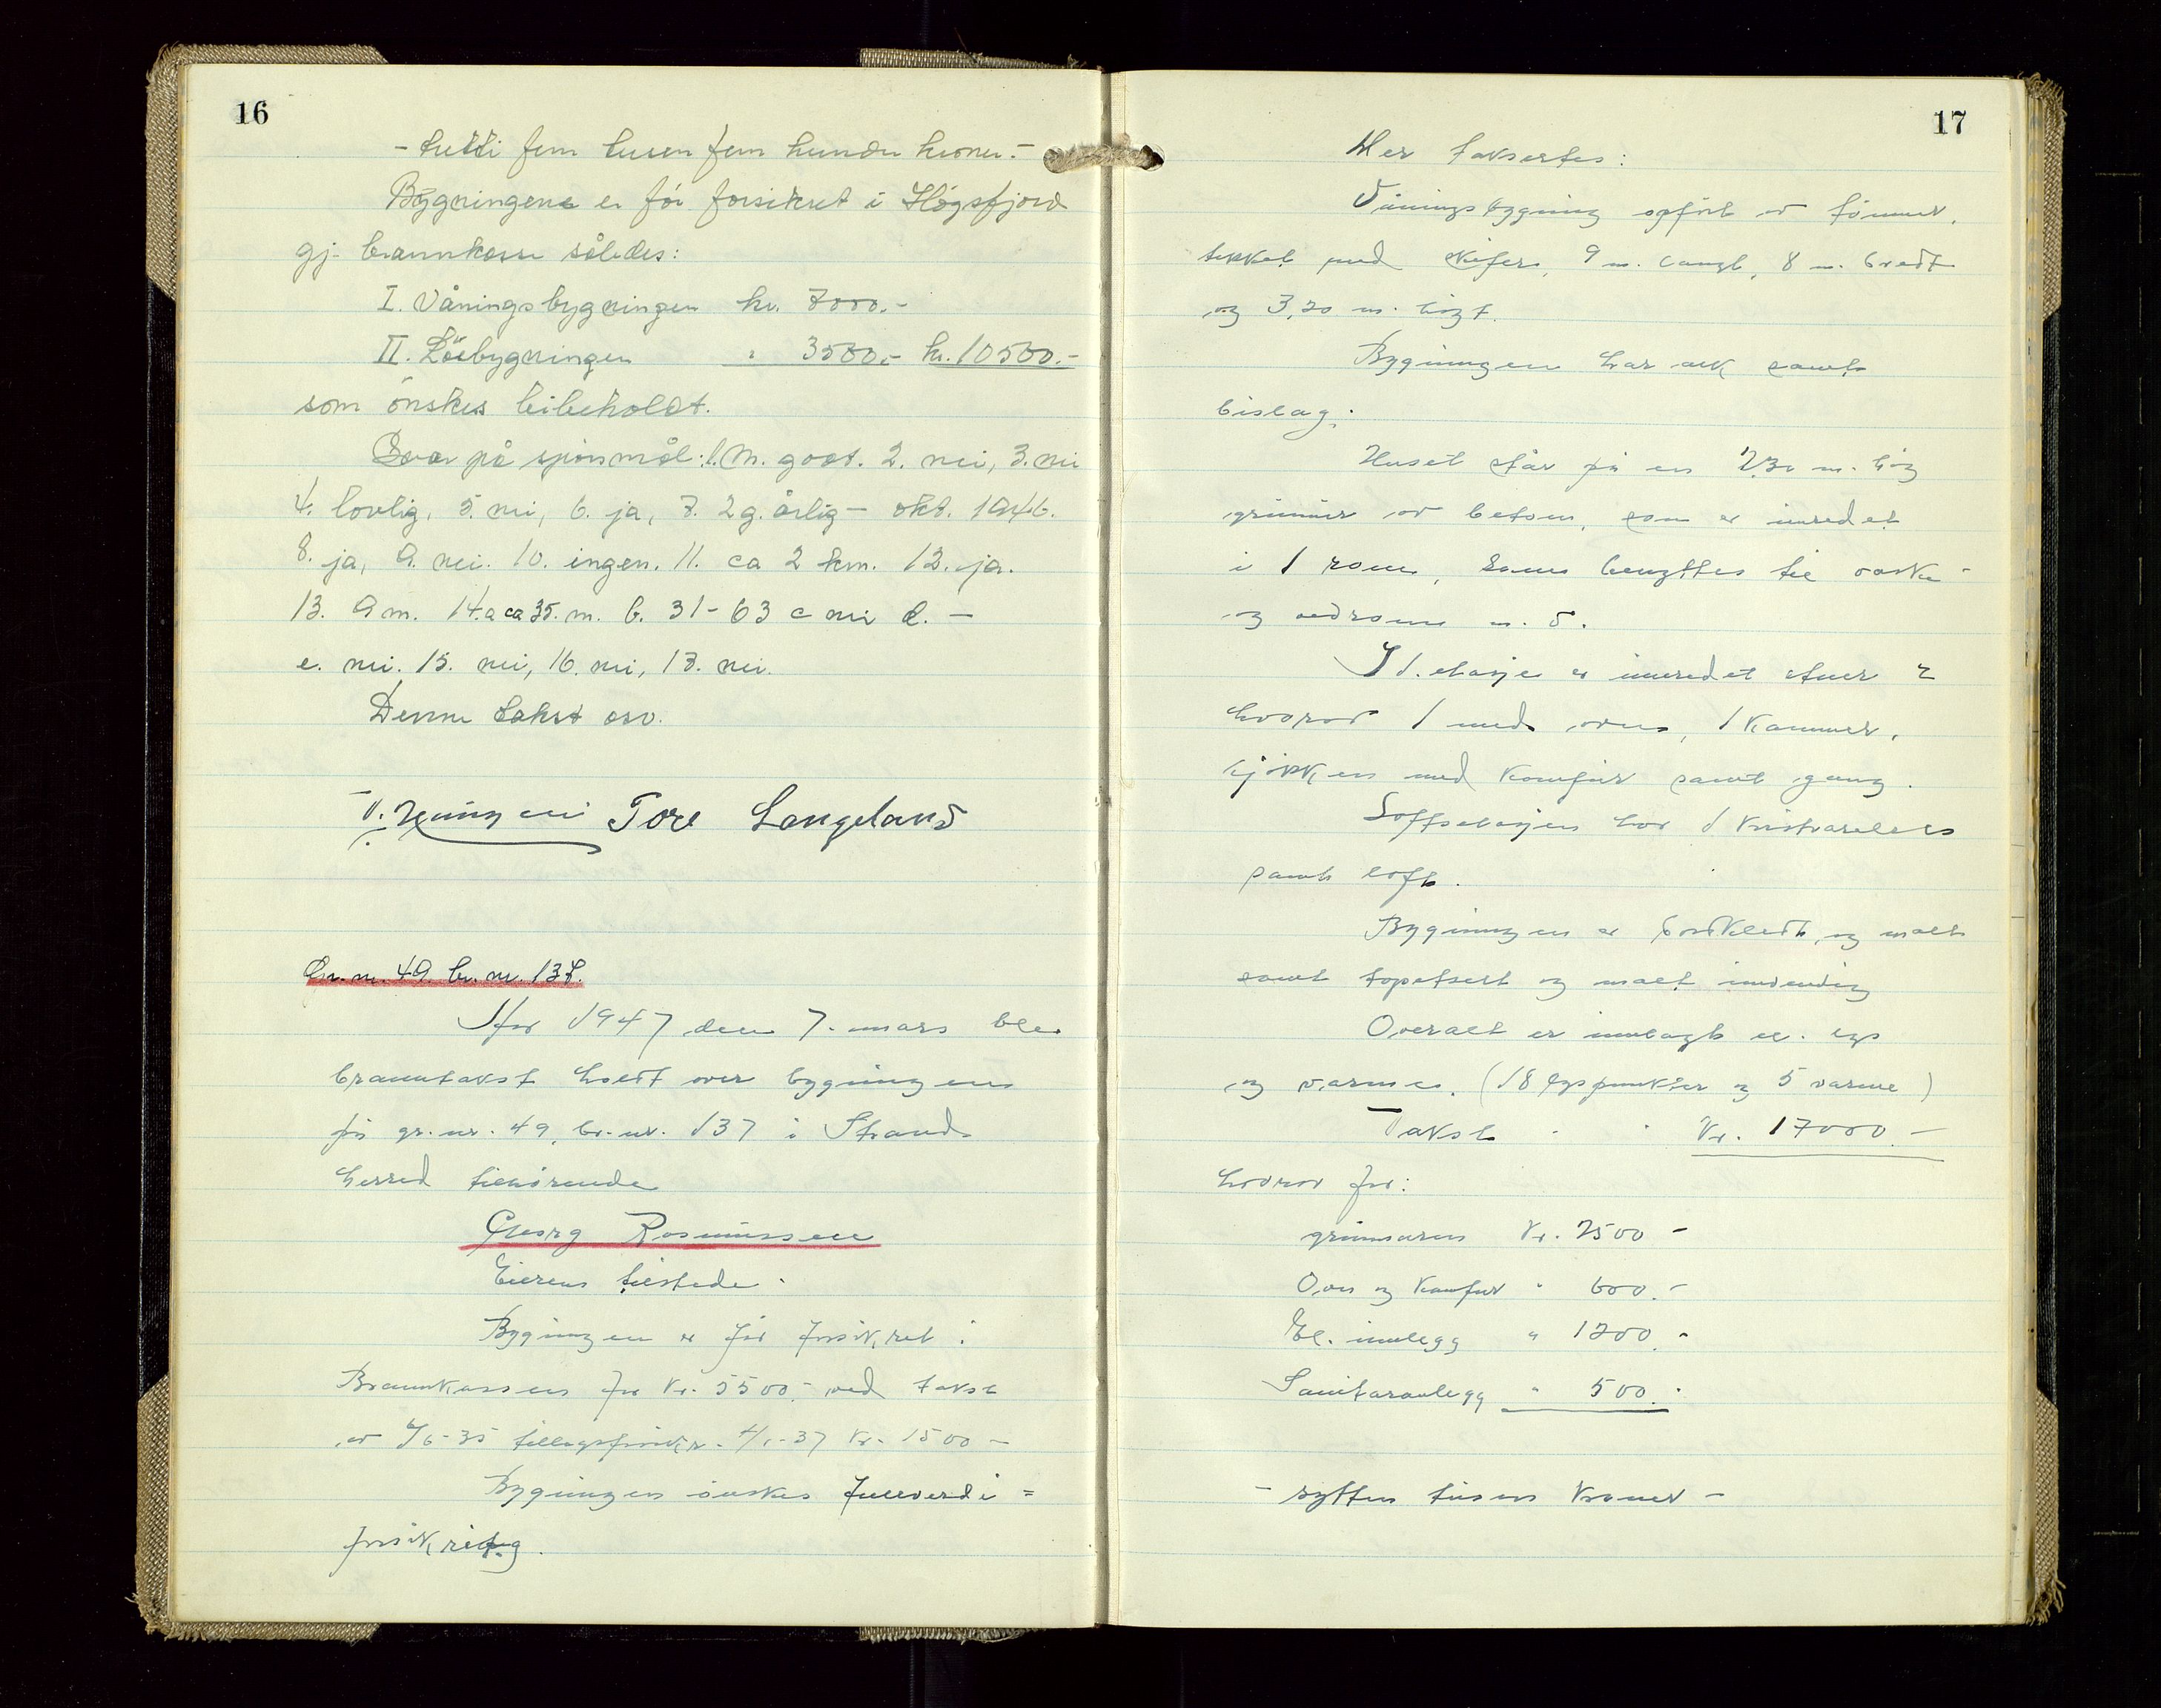 16
- tretti fem tusen fem hundre kroner. -
Bygningene er før forsikret i Høgsfjord
gj. brannkasse således:
I. Våningsbygningen kr. 7000.-
II. Löebygningen " 3500.- kr. 10500.-
som ønskes bibeholdt.
Svar på spörsmål: 1. M. godt. 2. nei, 3. nei
4. lovlig, 5. nei, 6. ja, 7. 2 g. årlig - okt. 1946.
8. ja, 9. nei. 10. ingen. 11. ca 2 km. 12. ja.
13. 9 m. 14. a ca 35. m. b. 31-63 c nei d. -
e. nei. 15. nei, 16. nei, 17. nei.
Denne takst osv.
Tore Langeland
Gr. nr. 49. br. nr. 137.
År 1947 den 7. mars blev
branntakst holdt over bygningen
på gr. nr. 49, br. nr. 137 i Strand
herred tilhørende
Georg Rasmussen
Eieren tilstede.
Bygningen er før forsikret i
Brannkassen for kr. 5500.- ved takst
av 7/6-35 tilleggsforsikr. 4/1-37 kr. 1500 -
Bygningen ønskes fullverdi =
forsikring.
17
Her takseres:
Våningsbygning opført av tømmer,
tekket med skifer, 9 m. langt, 8 m. bredt
og 3,20 m. høgt.
Bygningen har ark samt
bislag.
Huset står på en 2,30 m. høg
grunnmur av betong, som er inredet
i 1 rom, som benyttes til vaske-
og vedrom m. v.
I 1. etasje er innredet stuer 2
hvorav 1 med ovn, 1 kammer,
kjøkken med komfyr samt gang.
Loftsetasjen har 1 kvistværelers
samt loft.
Bygningen er bordkledt og malt
samt tapetsert og malt innvendig
Overalt er innlagt el. lys
og varme. (18 lyspunkter og 5 varme)
Takst kr. 17000.-
hvorav for:
grunnmuren kr. 2500 -
Ovn og komfyr " 600.-
El. innlegg " 1200.-
Sanitæranlegg " 500.-
- sytten tusen kroner -